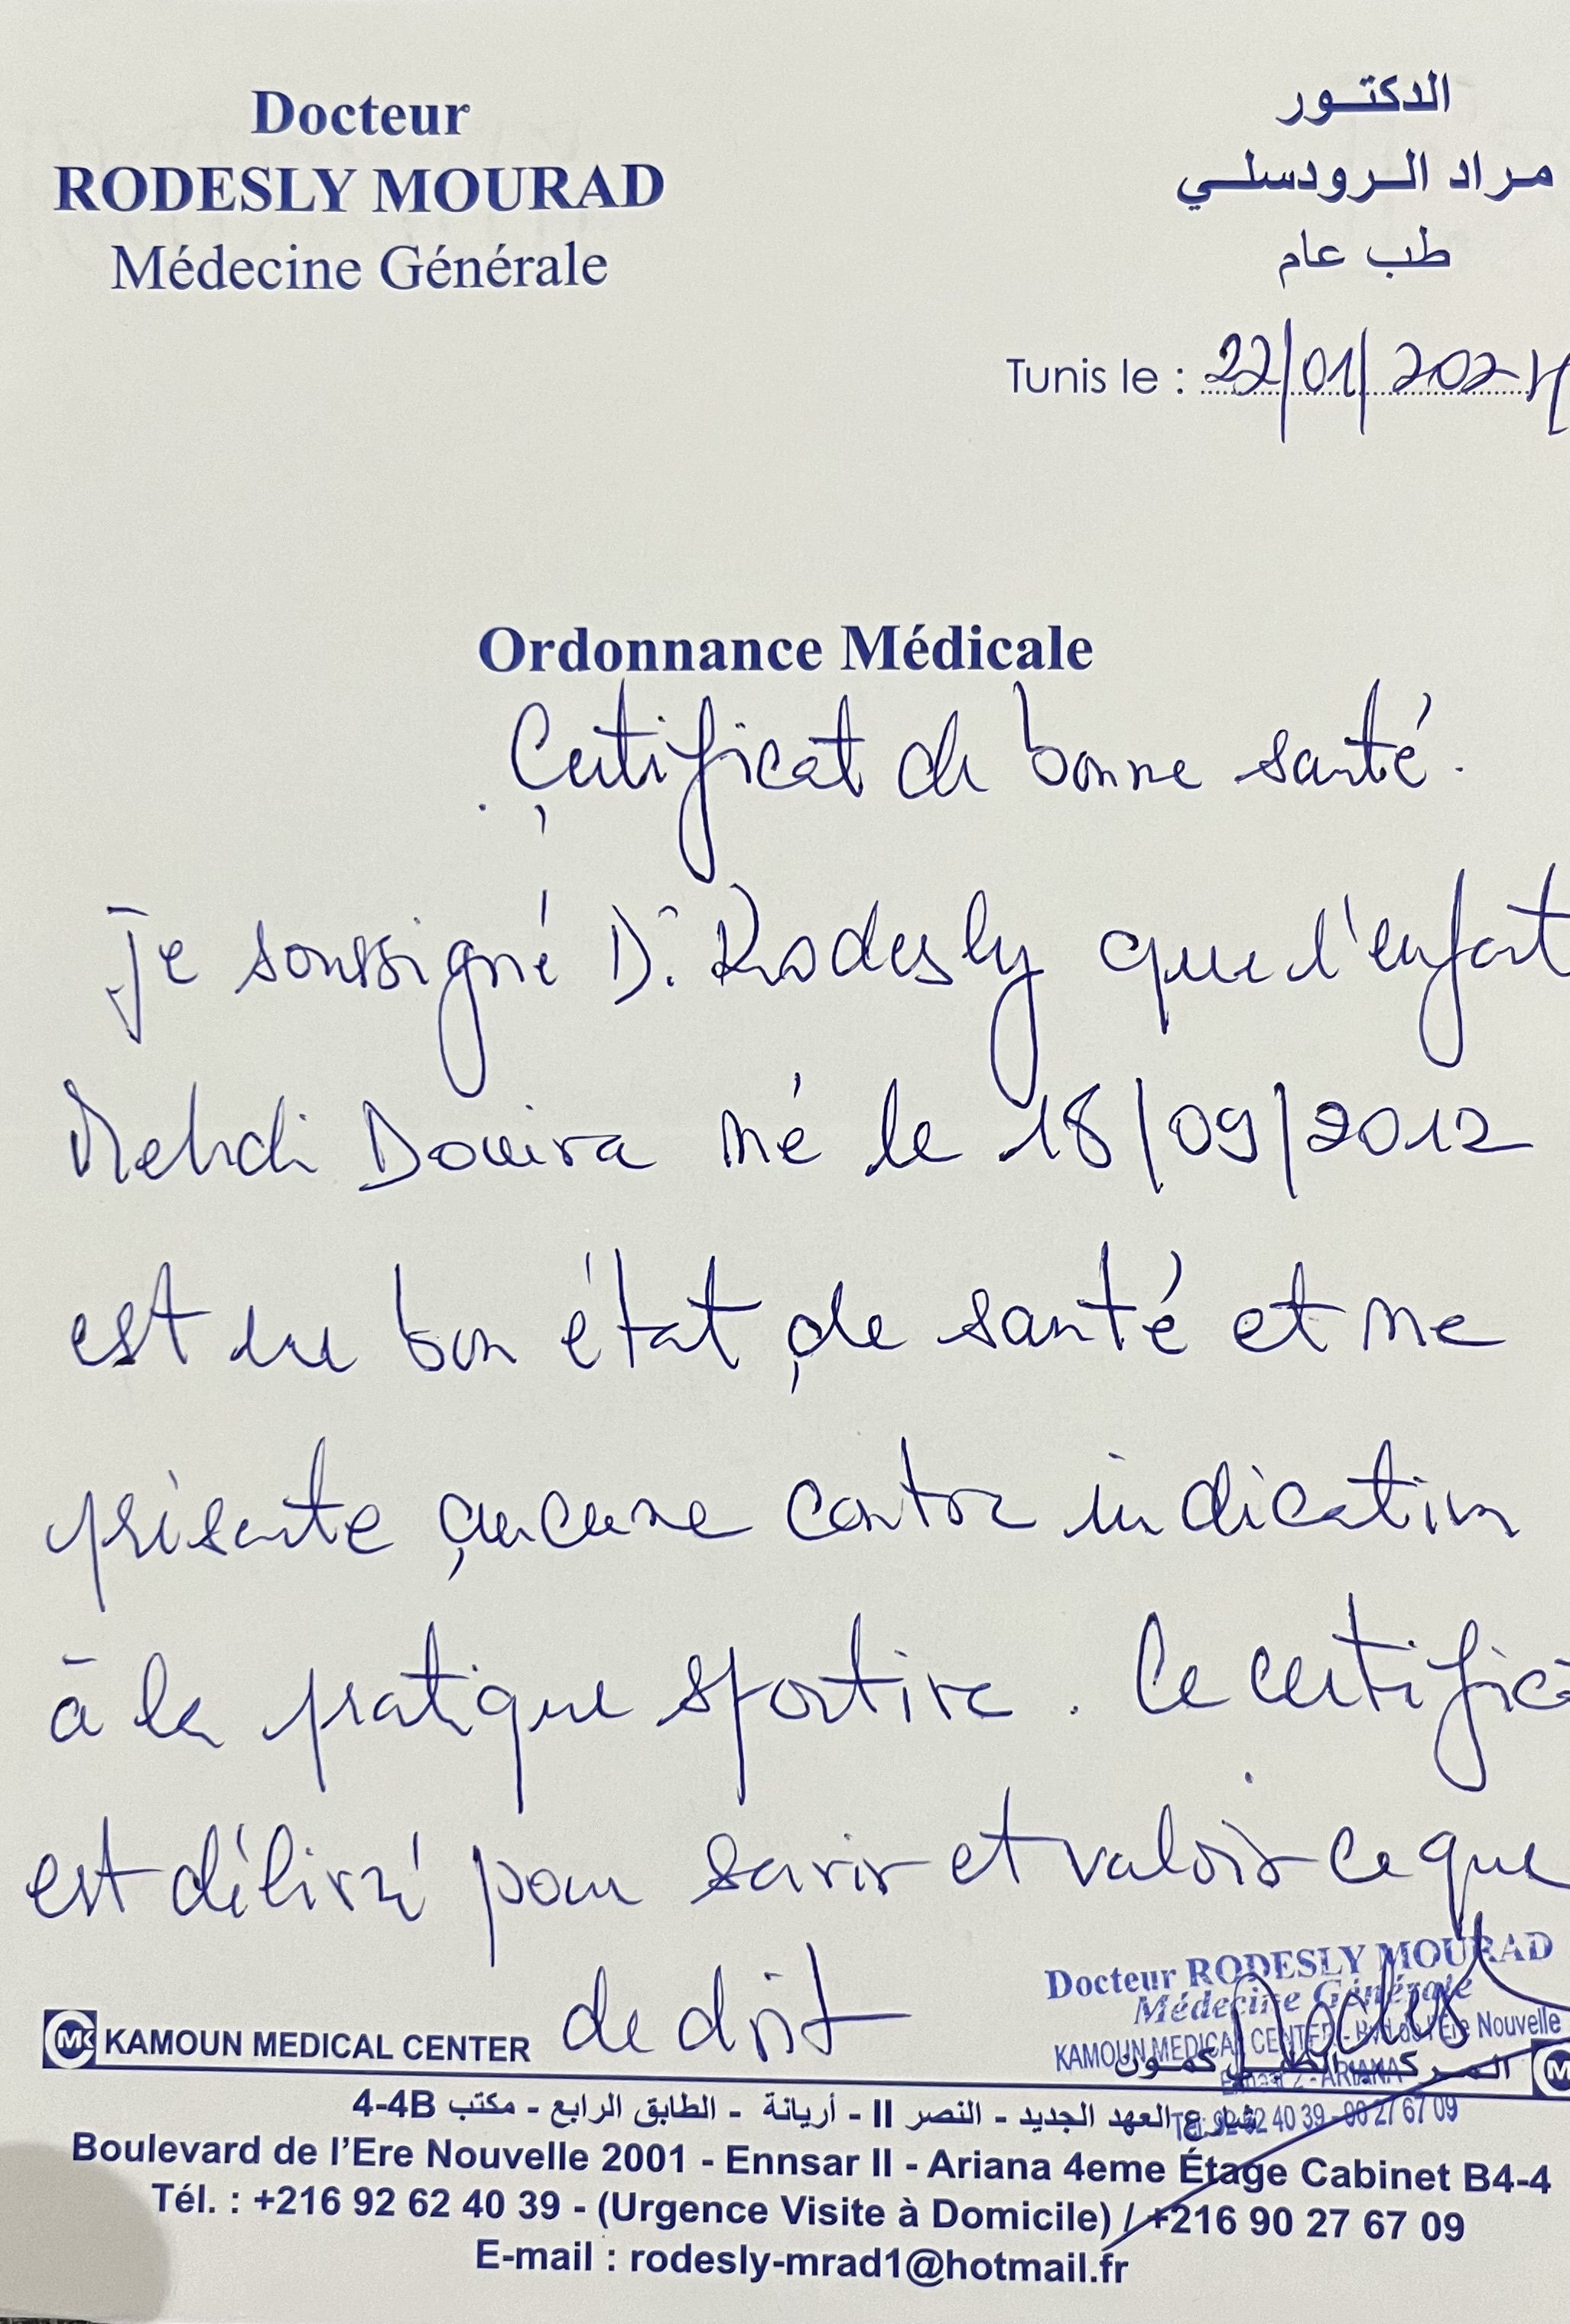 Docteur
RODESLY MOURAD
Médecine Générale
الدكتور
مراد الرودسلي
طب عام
Tunis le : 22/01/2024
Ordonnance Médicale
Certificat de bonne santé.
Je soussigné Dr Rodesly que l'enfant
Mehdi Douira né le 18/09/2012
est en bon état de santé et ne
présente aucune contre indication
à la pratique sportive. Ce certifica
est délivré pour servir et valoir ce que
de droit
Docteur RODESLY MOURAD
Médecine Générale
KAMOUN MEDICAL CENTER - Bvd de l'Ere Nouvelle
Ennasr 2 - ARIANA
Tél: 92 62 40 39 - 90 27 67 09
KAMOUN MEDICAL CENTER
المركز الطبي كمون
شارع العهد الجديد - النصر II - أريانة - الطابق الرابع - مكتب 4-4B
Boulevard de l'Ere Nouvelle 2001 - Ennsar II - Ariana 4eme Étage Cabinet B4-4
Tél. : +216 92 62 40 39 - (Urgence Visite à Domicile) / +216 90 27 67 09
E-mail : rodesly-mrad1@hotmail.fr